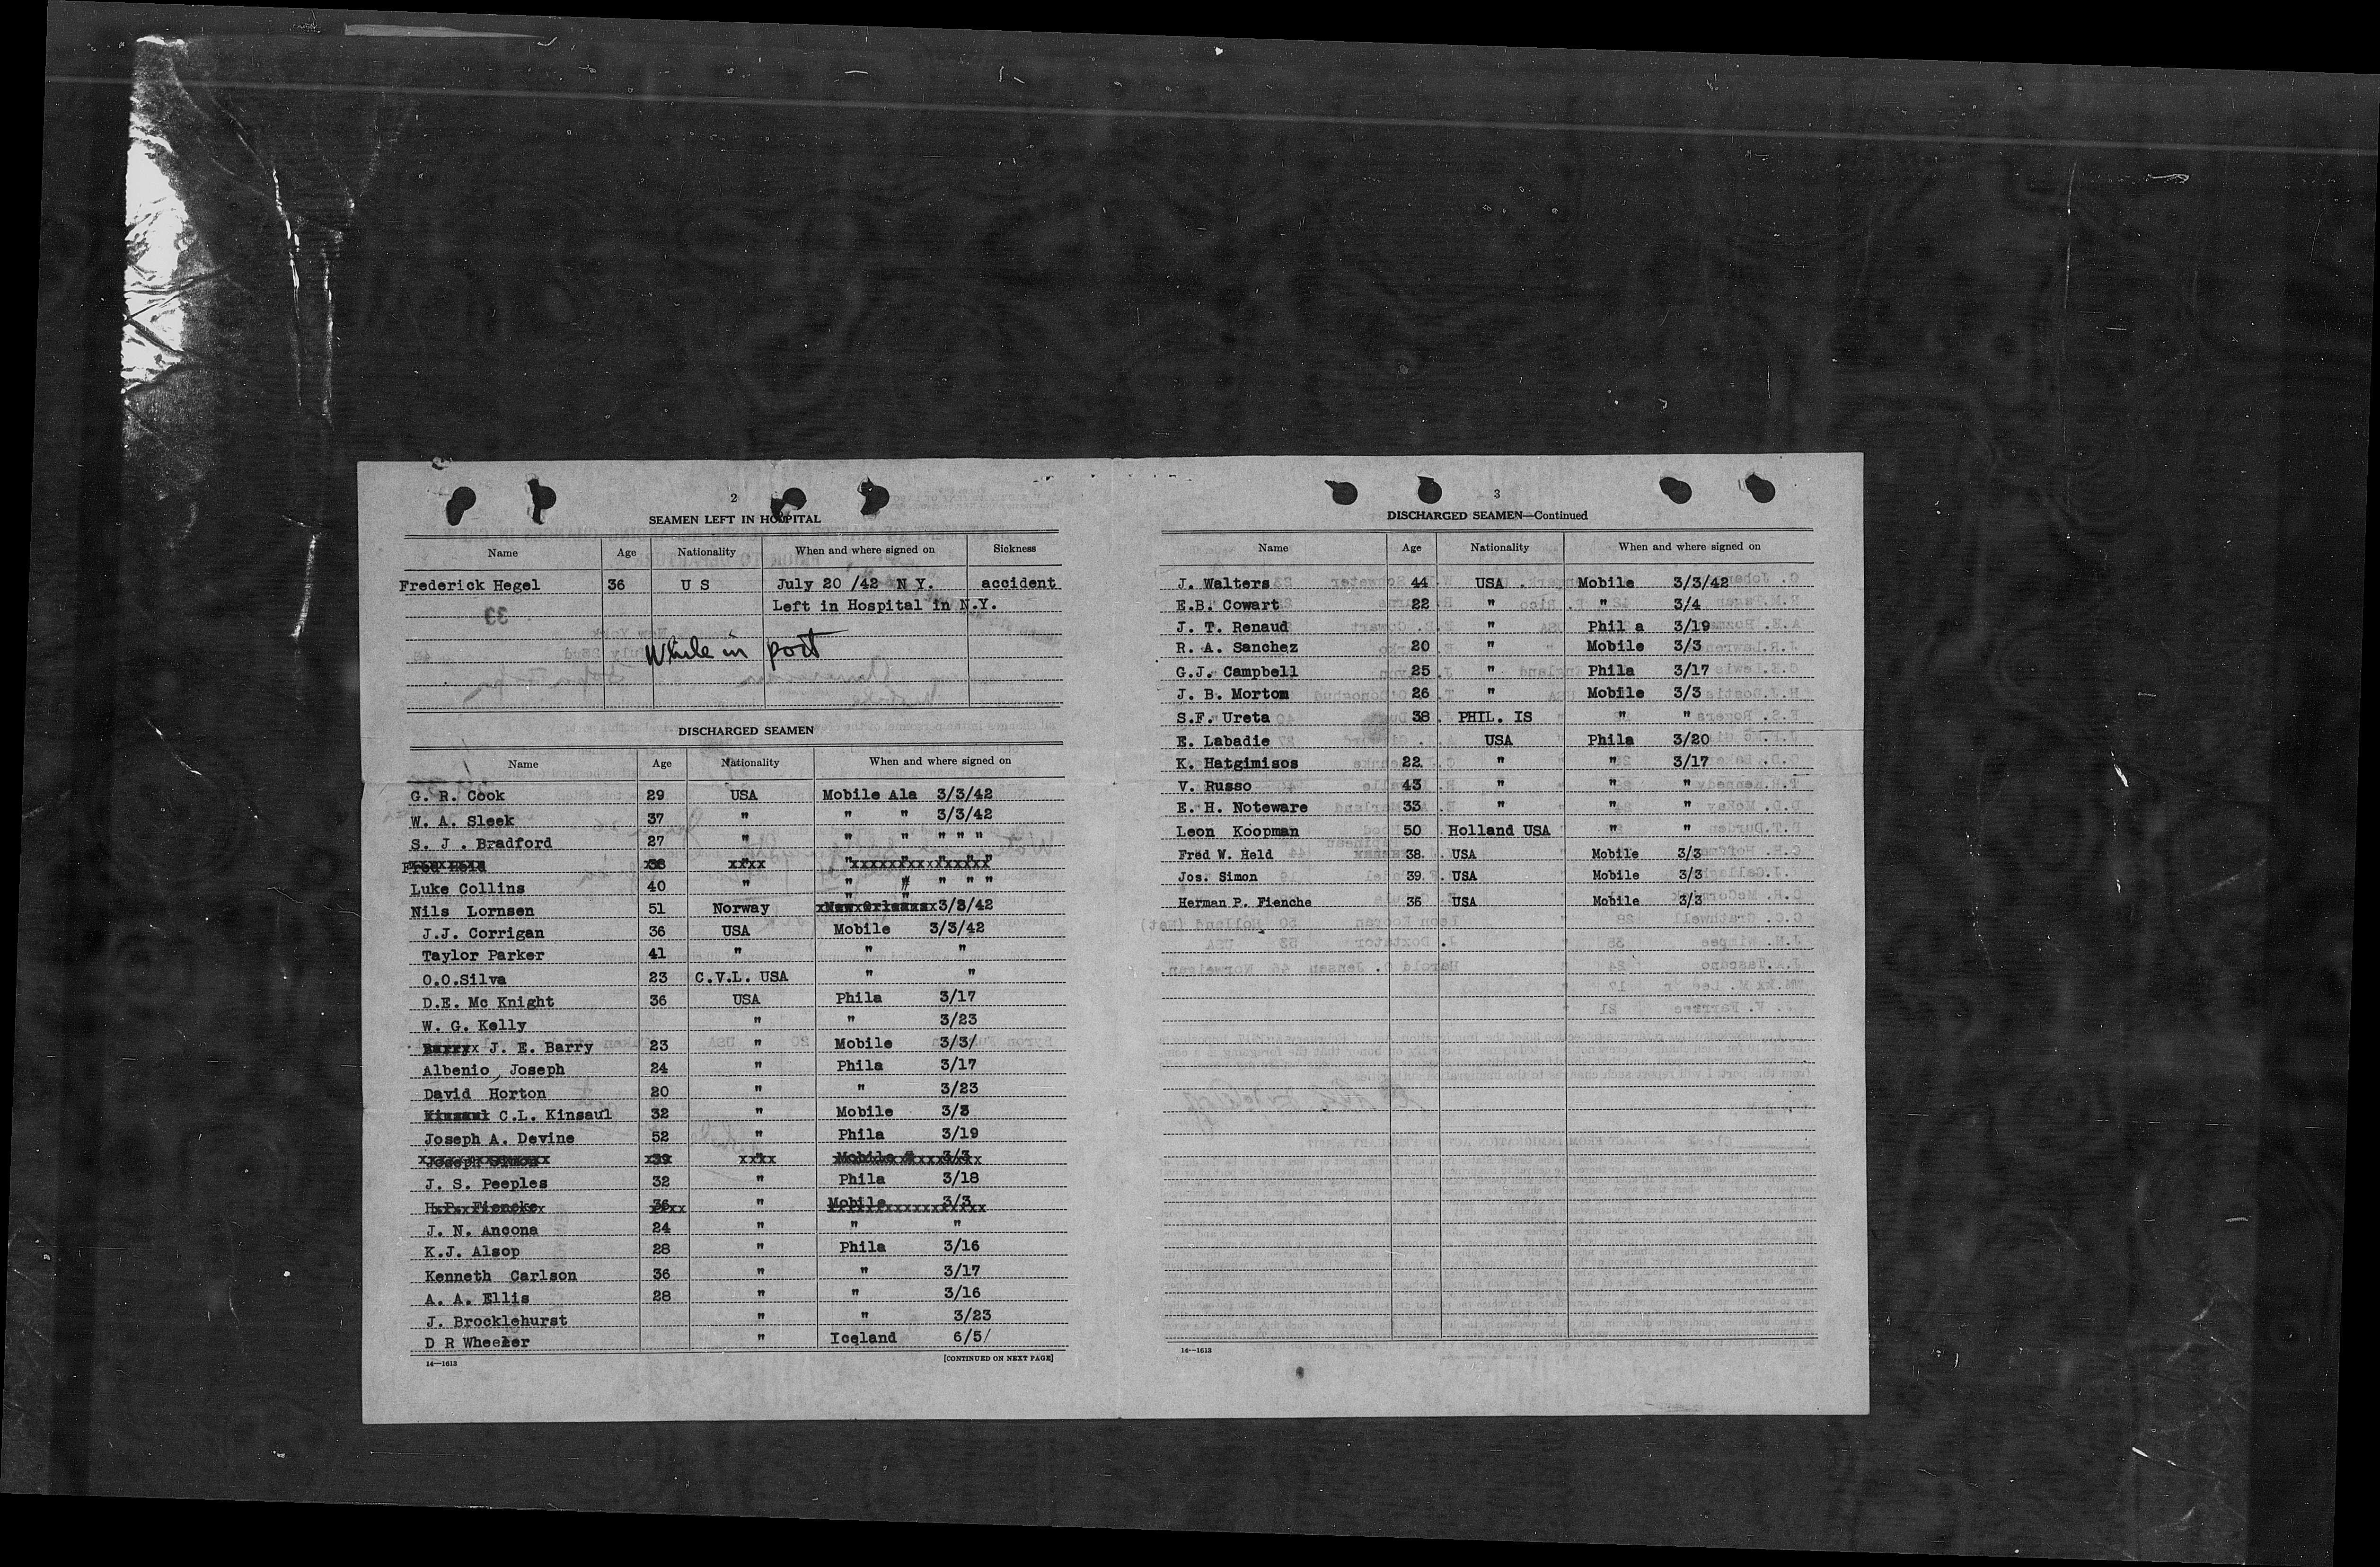 2
SEAMEN LEFT IN HOSPITAL
Name Age Nationality When and where signed on Sickness
Frederick Hegel 36 U S July 20 /42 N Y. accident
Left in Hospital in N.Y.
While in port
DISCHARGED SEAMEN
Name Age Nationality When and where signed on
G. R. Cook 29 USA Mobile Ala 3/3/42
W. A. Sleek 37 " " " 3/3/42
S. J . Bradford 27 " " " " " "
Fred Held 38 " " " " " "
Luke Collins 40 " " " " " "
Nils Lornsen 51 Norway " " New Orleans 3/3/42
J.J. Corrigan 36 USA Mobile 3/3/42
Taylor Parker 41 " " "
O.O.Silva 23 C.V.L. USA " "
D.E. Mc Knight 36 USA Phila 3/17
W. G. Kelly " " 3/23
Barry J. E. Barry 23 " Mobile 3/3/
Albenio, Joseph 24 " Phila 3/17
David Horton 20 " " 3/23
Kinsaul C.L. Kinsaul 32 " Mobile 3/3
Joseph A. Devine 52 " Phila 3/19
Joseph Simon 39 " Mobile 3/3
J. S. Peeples 32 " Phila 3/18
H.P. Fiencke 36 " Mobile 3/3
J. N. Ancona 24 " " "
K.J. Alsop 28 " Phila 3/16
Kenneth Carlson 36 " " 3/17
A. A. Ellis 28 " " 3/16
J. Brocklehurst " " 3/23
D R Wheeler " Iceland 6/5/
14—1613 [CONTINUED ON NEXT PAGE]
3
DISCHARGED SEAMEN—Continued
Name Age Nationality When and where signed on
J. Walters 44 USA . Mobile 3/3/42
E.B. Cowart 22 " " 3/4
J. T. Renaud " Phil a 3/19
R. A. Sanchez 20 " Mobile 3/3
G.J. Campbell 25 " Phila 3/17
J. B. Morton 26 " Mobile 3/3
S.F. Ureta 38 PHIL. IS " "
E. Labadie USA Phila 3/20
K. Hatgimisos 22 " " 3/17
V. Russo 43 " " "
E. H. Noteware 33 " " "
Leon Koopman 50 Holland USA " "
Fred W. Held 38 USA Mobile 3/3
Jos. Simon 39 USA Mobile 3/3
Herman P. Fienche 36 USA Mobile 3/3
14—1613